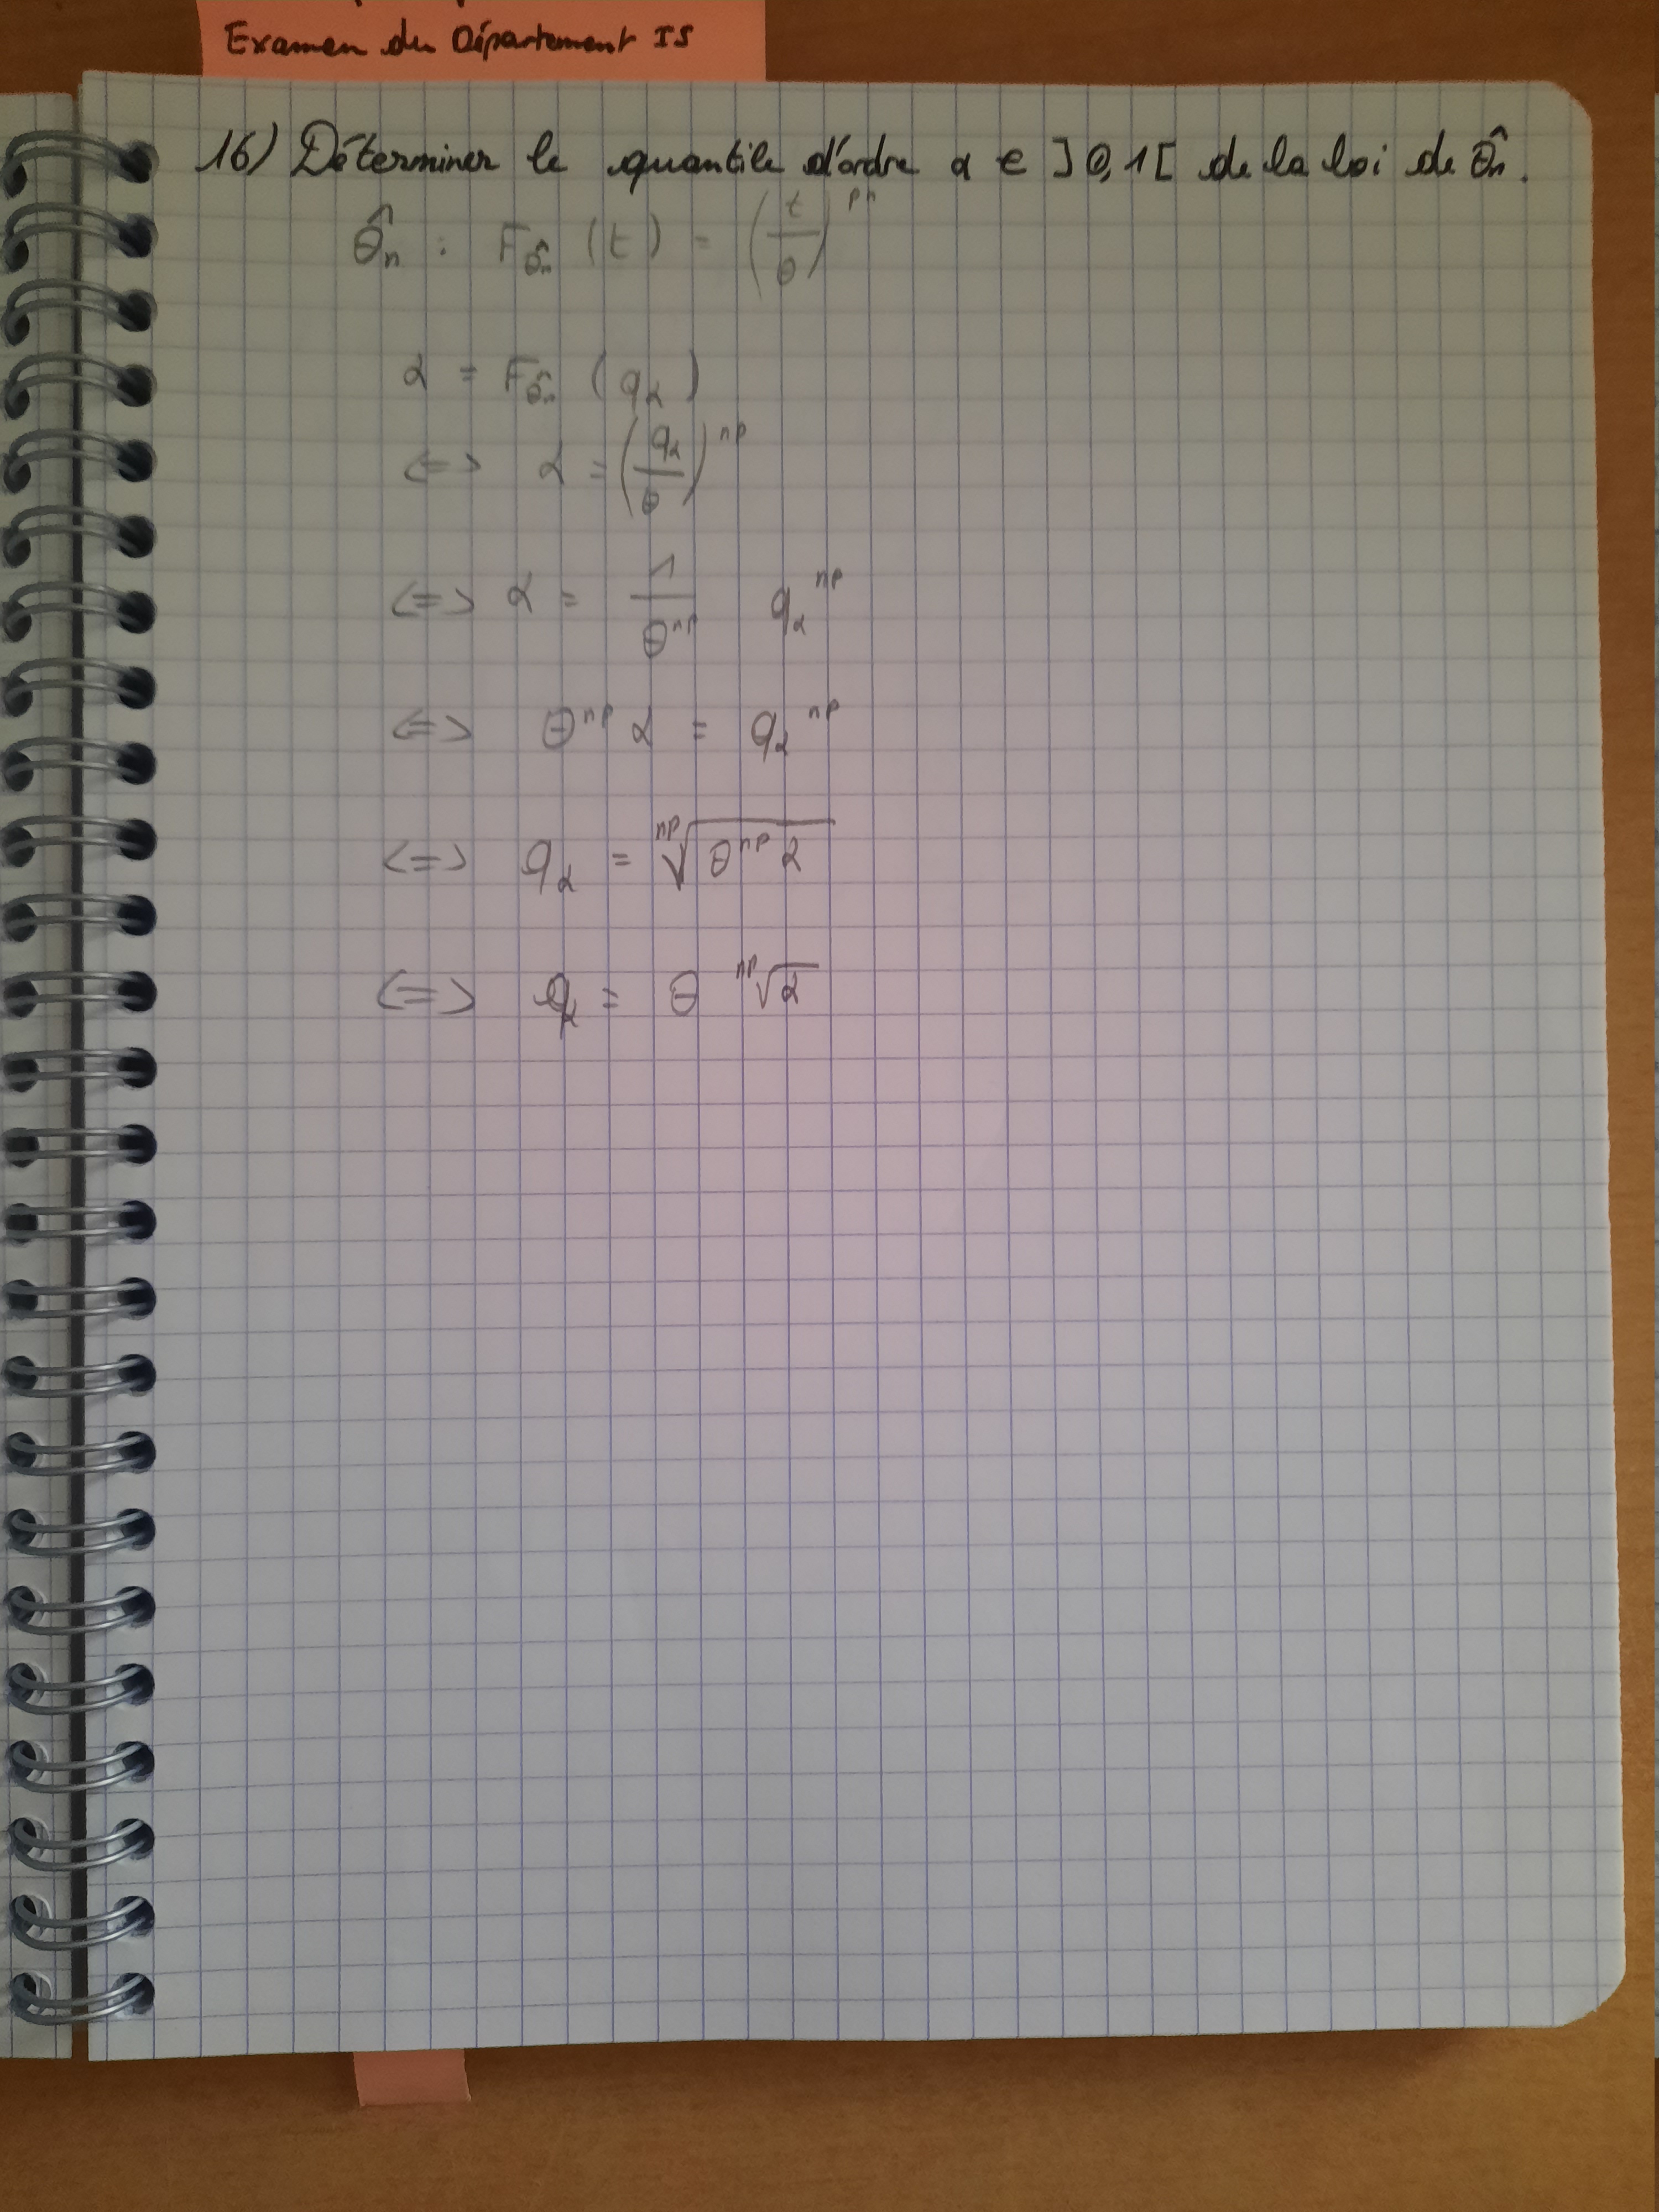 Examen du Département IS
16) Déterminer le quantile d'ordre α ∈ ]0,1[ de la loi de θ̂n.
θ̂n : Fθ̂n (t) = (t/θ)^pn
α = Fθ̂n (qα)
<=> α = (qα/θ)^np
<=> α = 1/θ^np qα^np
<=> θ^np α = qα^np
<=> qα = np√(θ^np α)
<=> qα = θ np√α